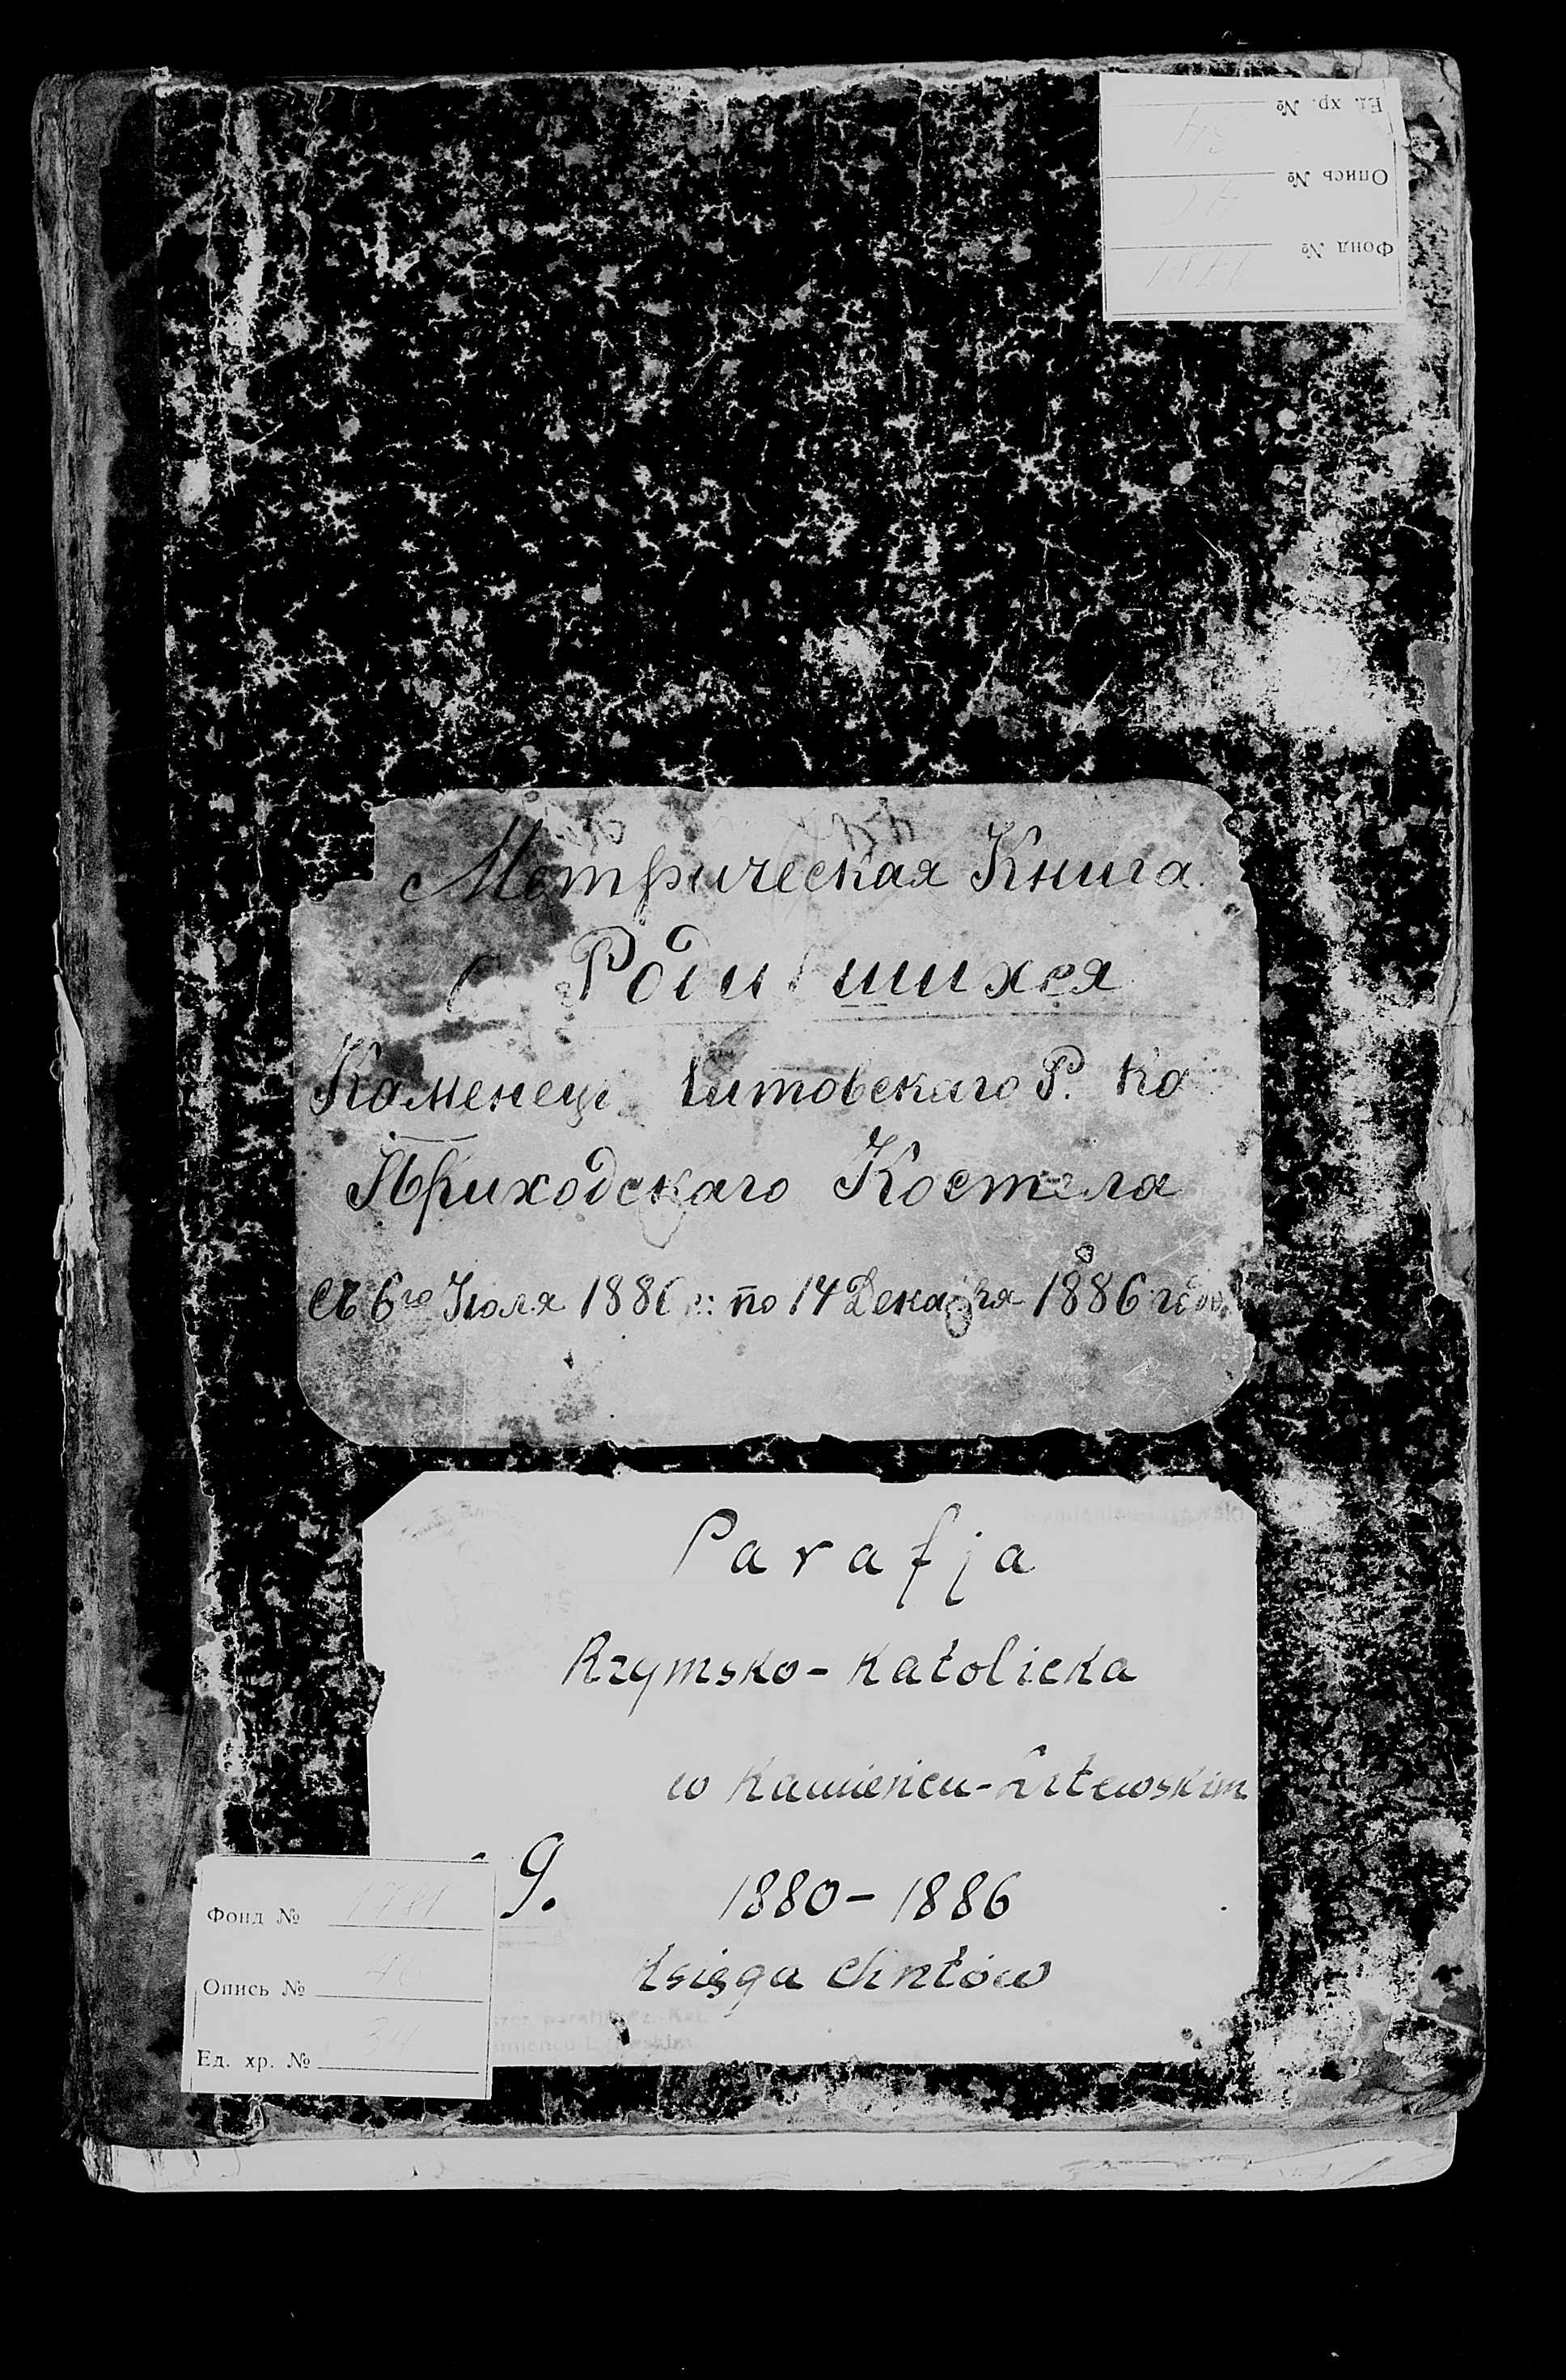 Ед. хр. №
Опись №
Фонд №
Метрическая Книга
Родившихся
Каменец Литовскаго Р. Ко
Приходскаго Костела
съ 6го Июля 188 г: по 14 Декабря 1886 года
Parafja
Rzymsko-Katolicka
w Kamieńcu-Litewskim
9. 1880-1886
Księga chrztów
Фонд № 1781
Опись №
Ед. хр. № 34